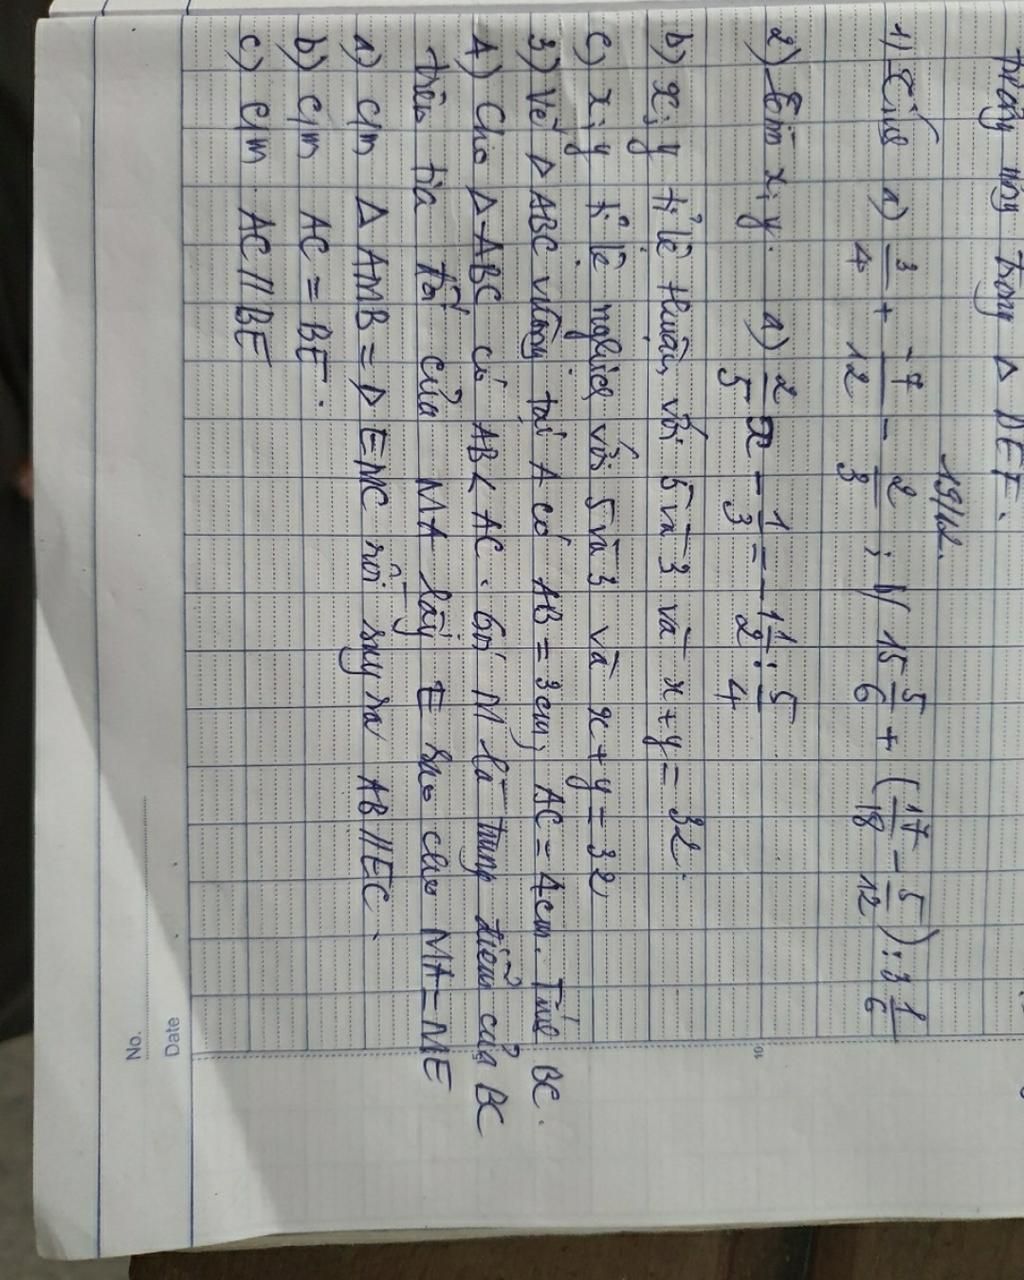 trong trong Δ DEF.
19/12.
1) Tính a) 3/4 + -7/12 - 2/3 ; b) 15 5/6 + (17/18 - 5/12) : 3 1/6
2) Tìm x, y. a) 2/5 x - 1/3 = - 1 1/2 : 5/4
b) x, y tỉ lệ thuận với 5 và 3 và x + y = 32.
c) x, y tỉ lệ nghịch với 5 và 3 và x + y = 32
3) Vẽ Δ ABC vuông tại A có AB = 3cm, AC = 4cm. Tính BC.
4) Cho Δ ABC có AB < AC. Gọi M là trung điểm của BC
trên tia đối của MA lấy E sao cho MA = ME
a) c/m Δ AMB = Δ EMC rồi suy ra AB // EC.
b) c/m AC = BE.
c) c/m AC // BE
No.
Date